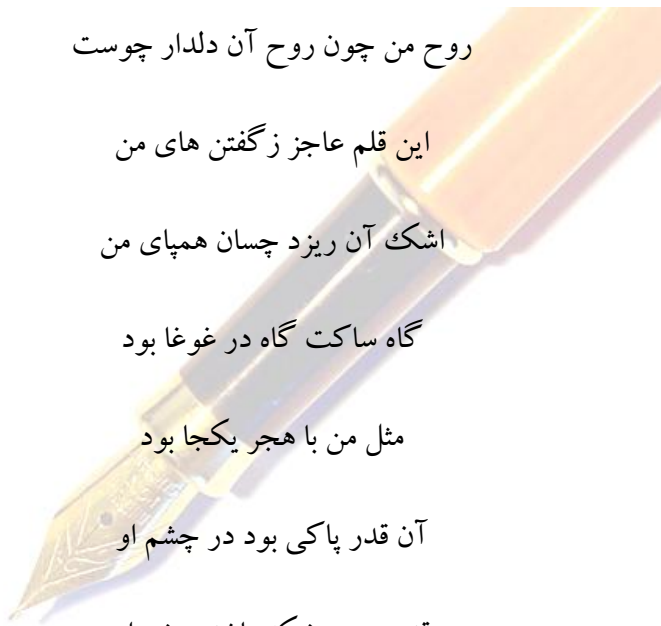 روح من چون روح آن دلدار چوست
این قلم عاجز ز گفتن های من
اشك آن ریزد چسان همپای من
گاه ساکت گاه در غوغا بود
مثل من با هجر یکجا بود
آن قدر پاکی بود در چشم او